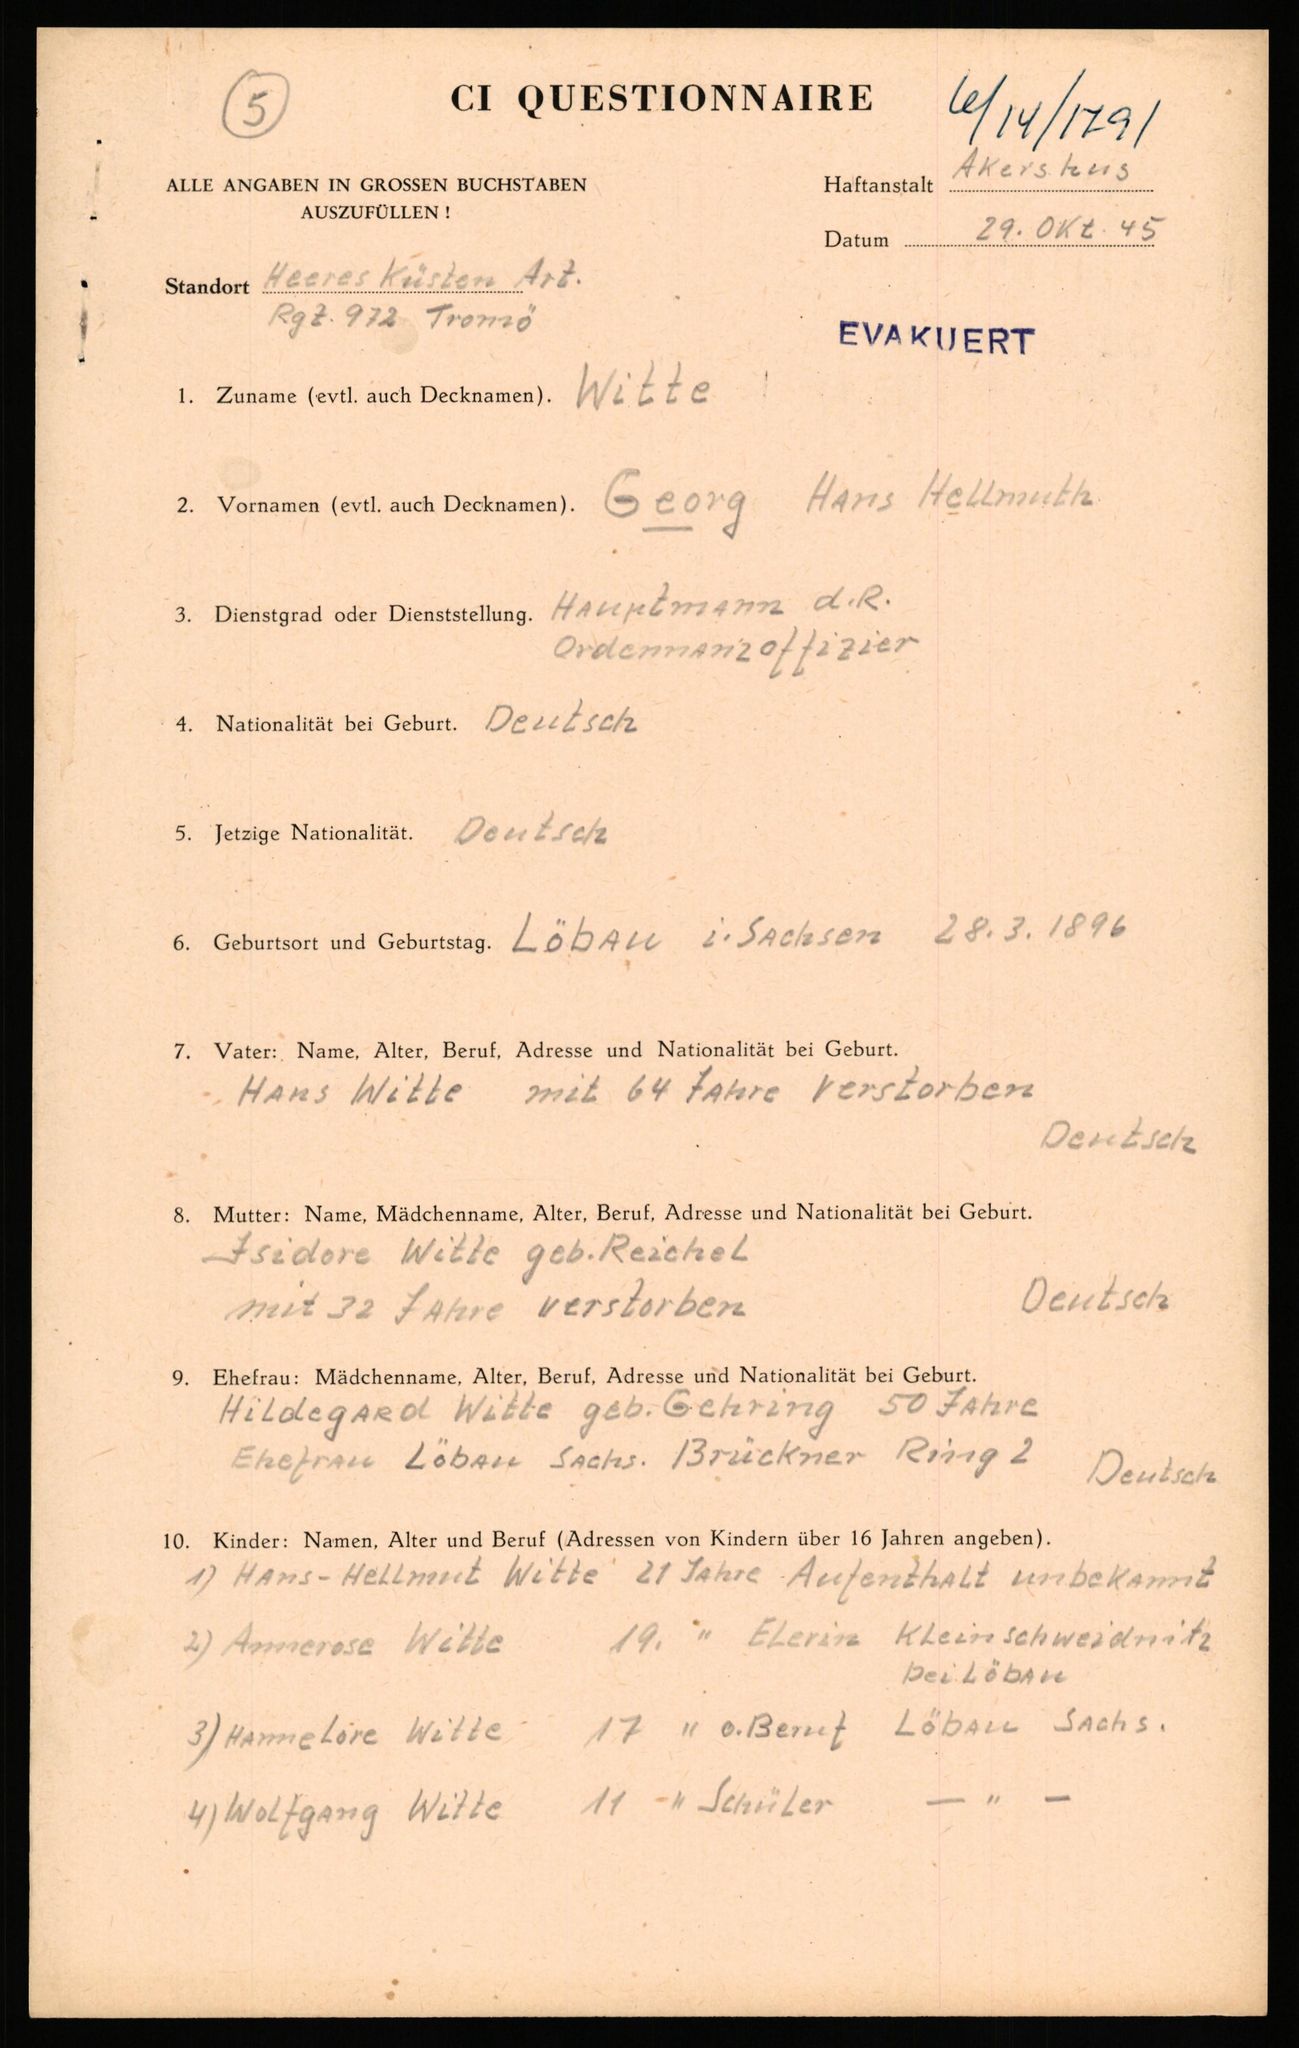 5
CI QUESTIONNAIRE
14/1791
ALLE ANGABEN IN GROSSEN BUCHSTABEN
AUSZUFÜLLEN !
Haftanstalt Akershus
Datum 29. Okt. 45
Standort Heeres Küsten Art.
Rgt. 972 Tromö
EVAKUERT
1. Zuname (evtl. auch Decknamen). Witte
2. Vornamen (evtl. auch Decknamen). Georg Hans Hellmuth
3. Dienstgrad oder Dienststellung. Hauptmann d.R.
Ordennanzoffizier
4. Nationalität bei Geburt. Deutsch
5. Jetzige Nationalität. Deutsch
6. Geburtsort und Geburtstag. Löbau i. Sachsen 28.3.1896
7. Vater: Name, Alter, Beruf, Adresse und Nationalität bei Geburt.
Hans Witte mit 64 Jahre verstorben
Deutsch
8. Mutter: Name, Mädchenname, Alter, Beruf, Adresse und Nationalität bei Geburt.
Isidore Witte geb. Reichel
mit 32 Jahre verstorben Deutsch
9. Ehefrau: Mädchenname, Alter, Beruf, Adresse und Nationalität bei Geburt.
Hildegard Witte geb. Gehring 50 Jahre
Ehefrau Löbau Sachs. Brückner Ring 2 Deutsch
10. Kinder: Namen, Alter und Beruf (Adressen von Kindern über 16 Jahren angeben).
1) Hans-Hellmut Witte 21 Jahre Aufenthalt unbekannt
2) Annerose Witte 19. " Elerin Kleinschweidnitz
bei Löbau
3) Hannelore Witte 17 " o. Beruf Löbau Sachs.
4) Wolfgang Witte 11 " Schüler — " —